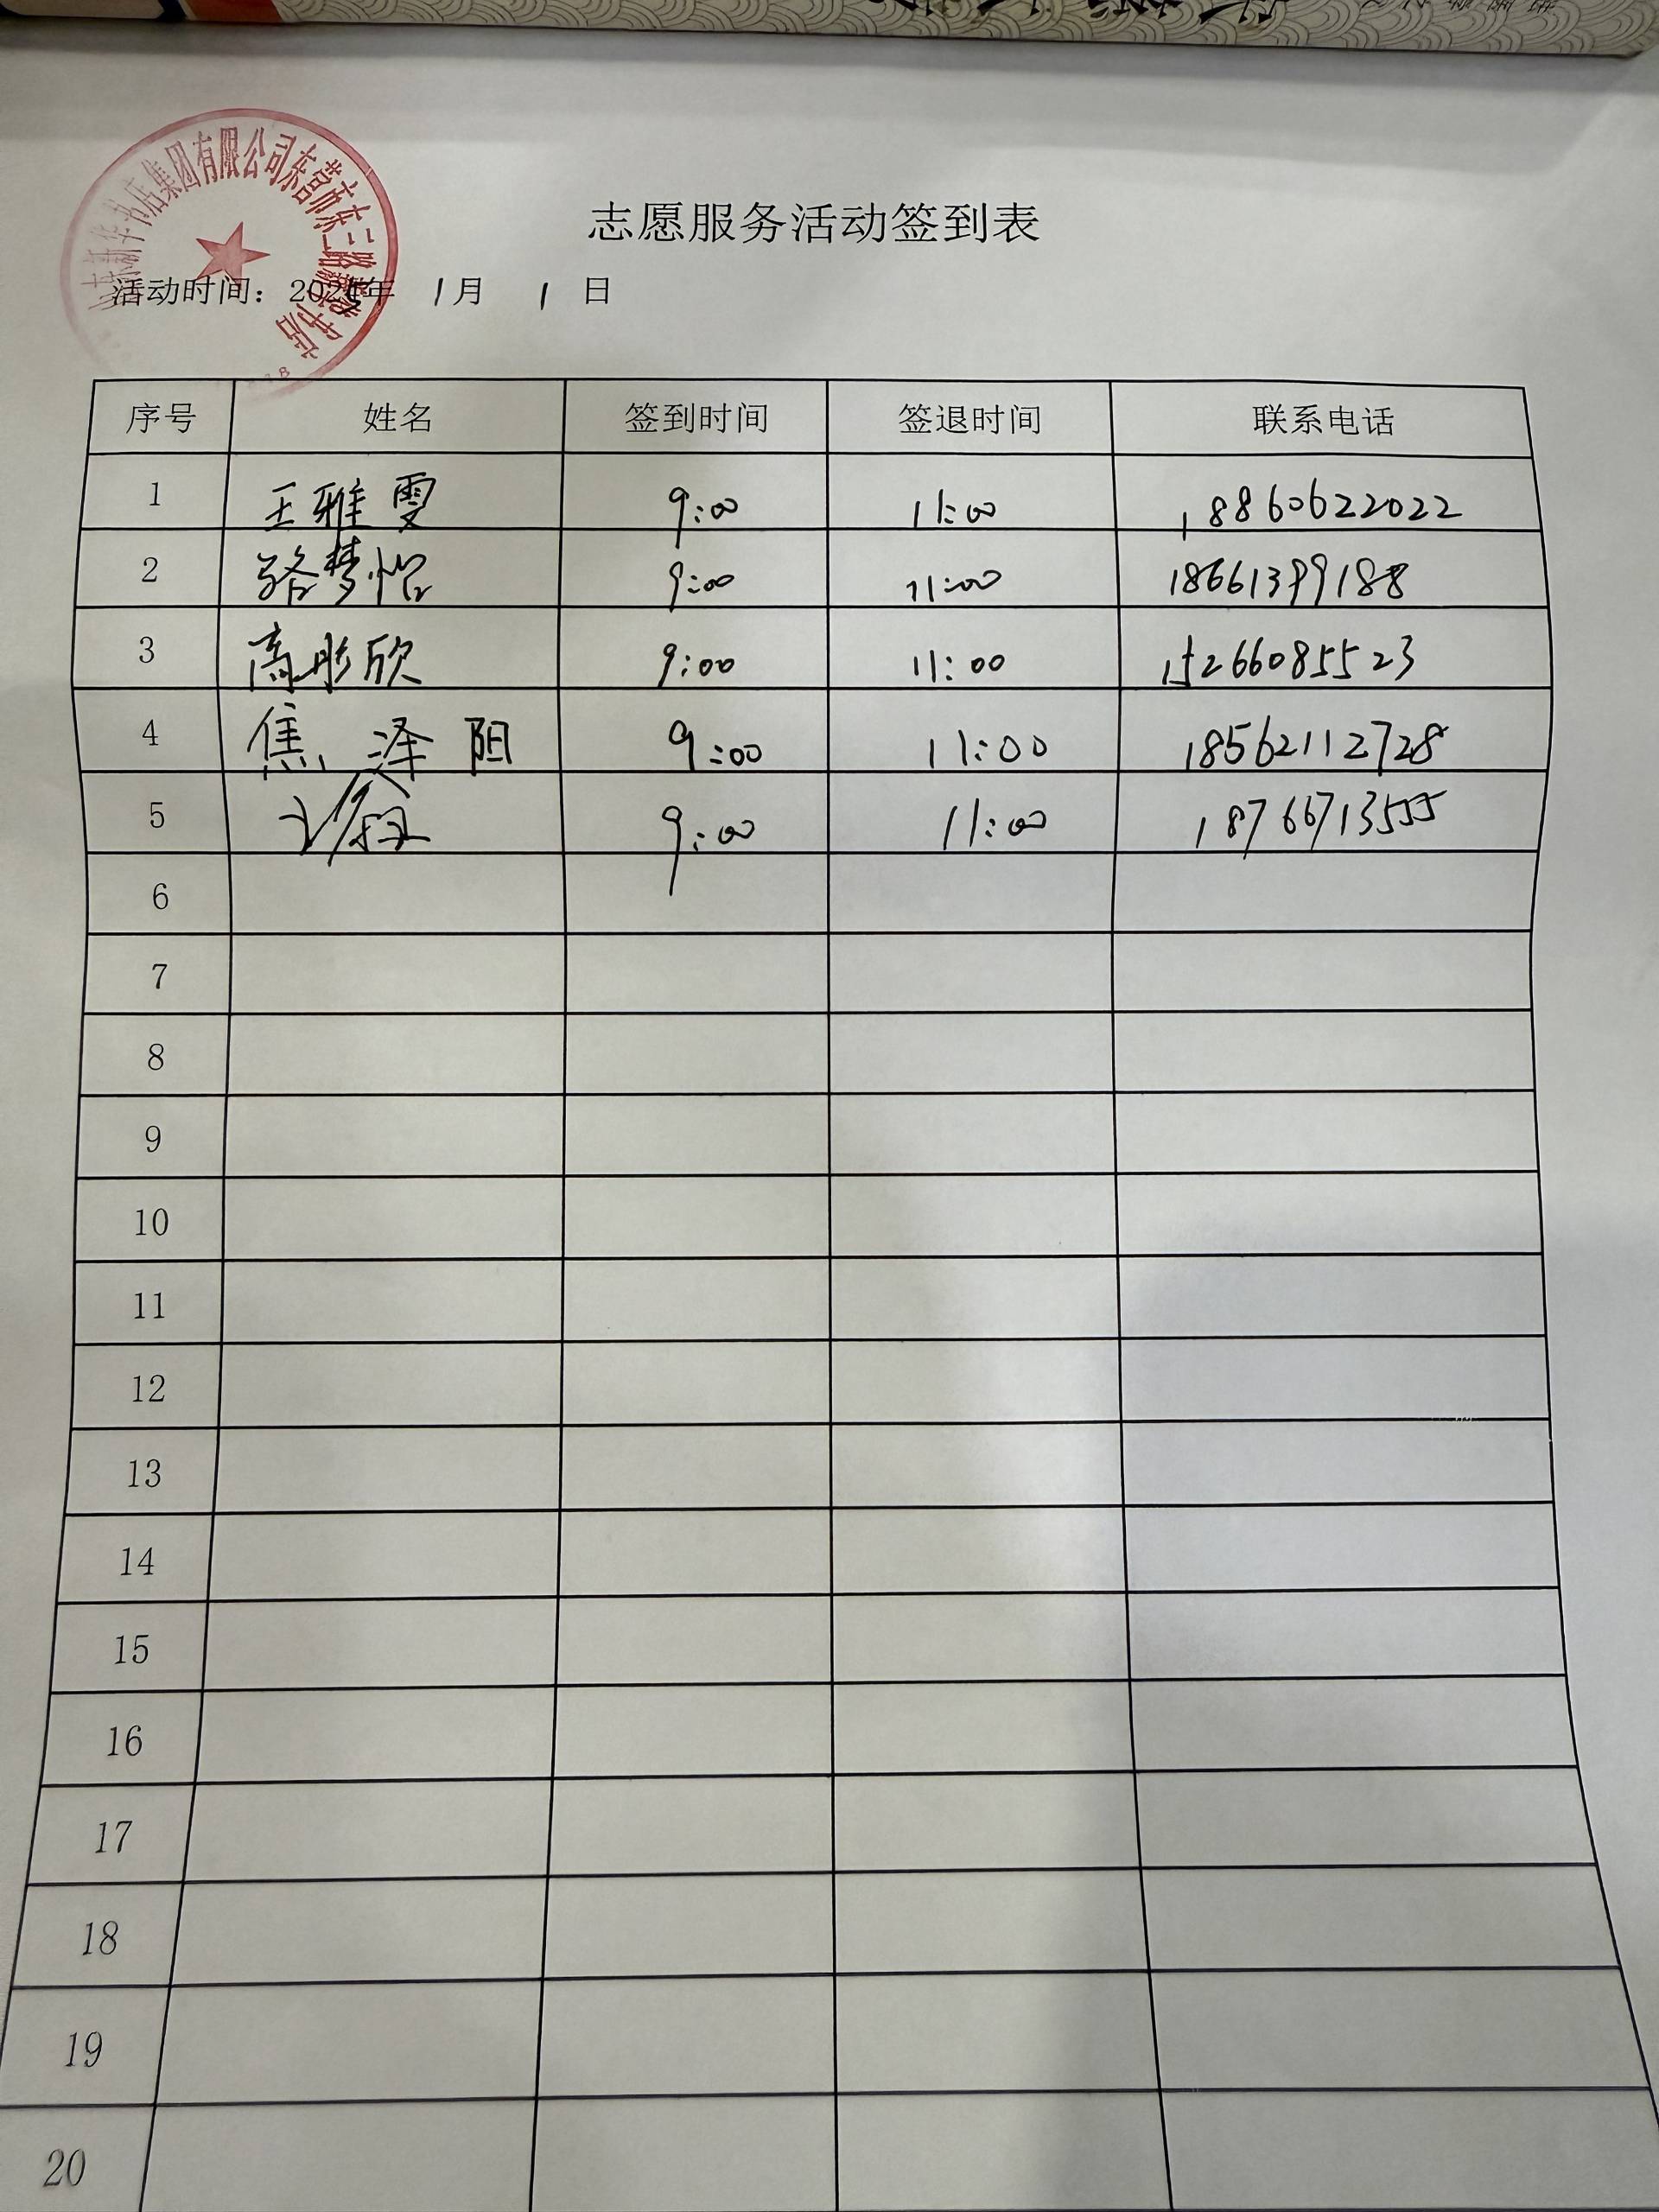 山东新华书店集团有限公司东营市东三路新华书店
志愿服务活动签到表
活动时间：2025年 1月 1 日
序号 姓名 签到时间 签退时间 联系电话
1 王雅雯 9:00 11:00 18860622022
2 骆梦怡 9:00 11:00 18661399188
3 高彤欣 9:00 11:00 15266085523
4 焦泽阳 9:00 11:00 18562112728
5 9:00 11:00 18766713555
6
7
8
9
10
11
12
13
14
15
16
17
18
19
20